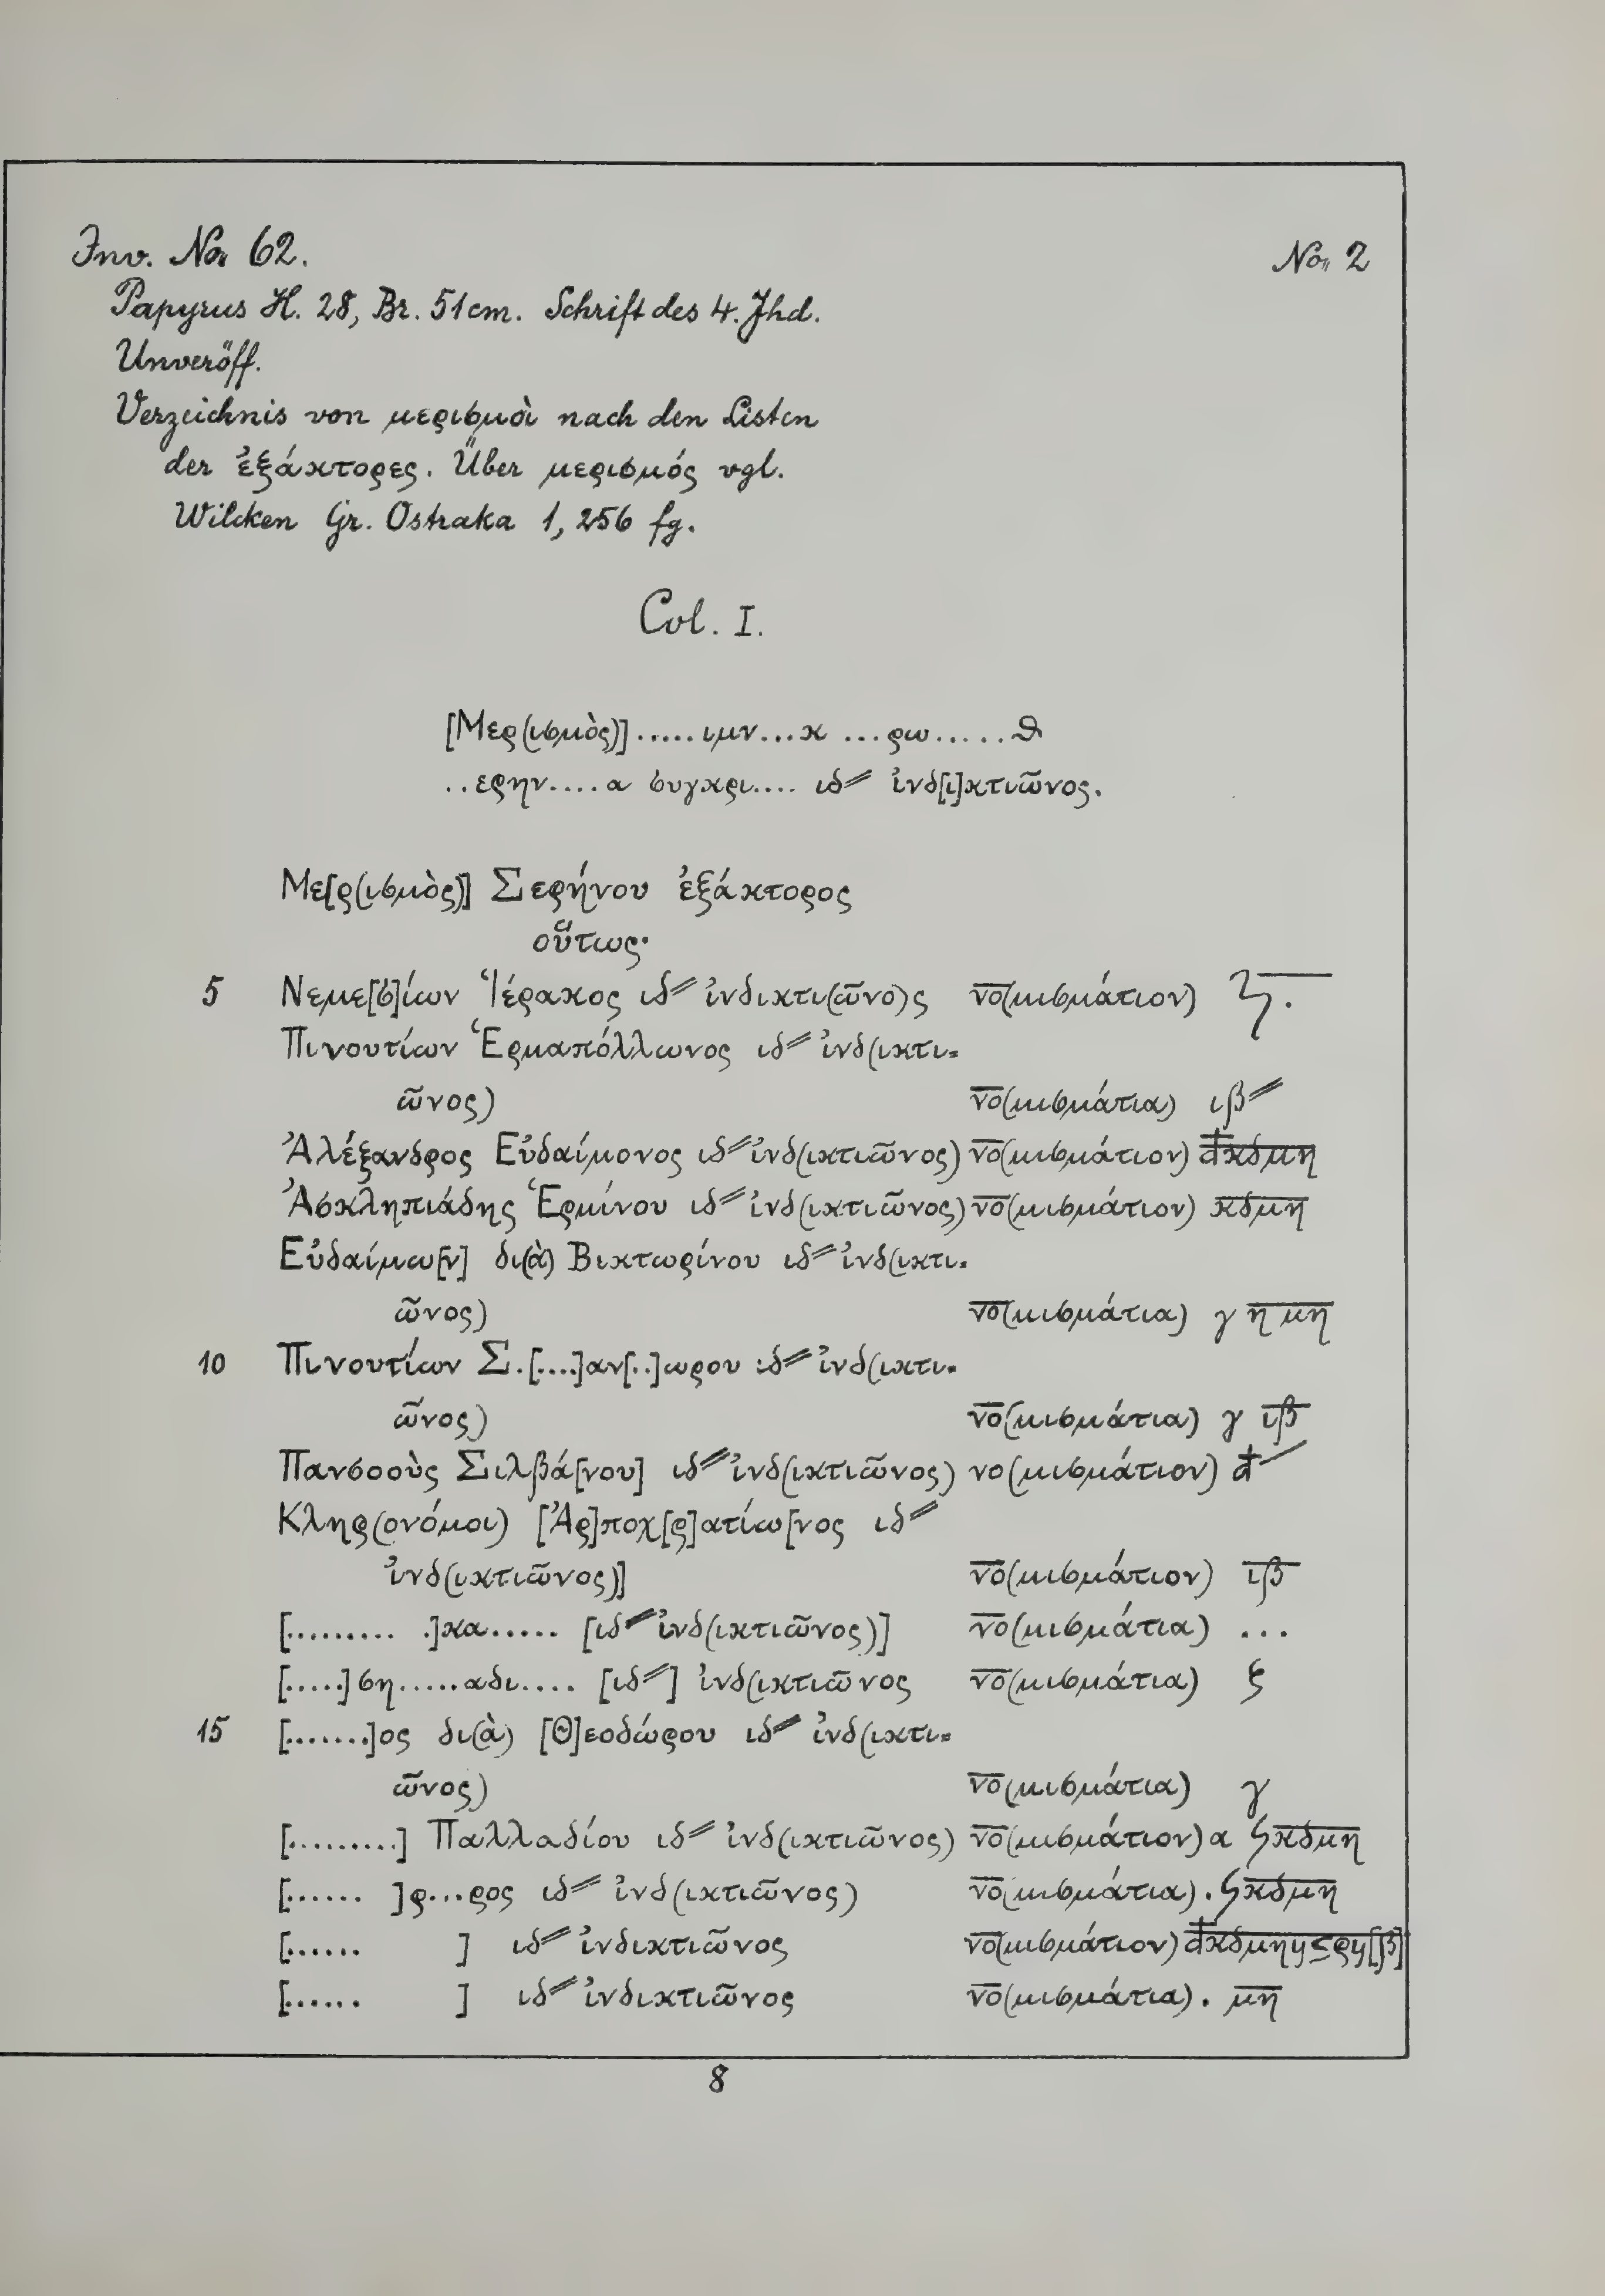 Inv. No. 62. No. 2
Papyrus H. 28, Br. 51 cm. Schrift des 4. Jhd.
Unveröff.
Verzeichnis von μερισμοὶ nach den Listen
der ἐξάκτορες. Über μερισμός vgl.
Wilcken Gr. Ostraka 1, 256 fg.
Col. I.
[Μερ(ισμὸς)].....ιμν...κ ...ρω.....θ
..ερην....α συγκρι.... ιδ⸗ ἰνδ[ι]κτιῶνος.
Με[ρ(ισμὸς)] Σερήνου ἐξάκτορος
οὕτως·
5 Νεμε[σ]ίων Ἱέρακος ιδ⸗ ἰνδικτι(ῶνο)ς ν̅ο̅(μισμάτιον)
Πινουτίων Ἑρμαπόλλωνος ιδ⸗ ἰνδ(ικτι-
ῶνος) ν̅ο̅(μισμάτια) ιβ⸗
Ἀλέξανδρος Εὐδαίμονος ιδ⸗ ἰνδ(ικτιῶνος) ν̅ο̅(μισμάτιον) d̅κ̅δ̅μ̅η̅
Ἀσκληπιάδης Ἑρμίνου ιδ⸗ ἰνδ(ικτιῶνος) ν̅ο̅(μισμάτιον) κ̅δ̅μ̅η̅
Εὐδαίμω[ν] δι(ὰ) Βικτωρίνου ιδ⸗ ἰνδ(ικτι-
ῶνος) ν̅ο̅(μισμάτια) γ η̅ μ̅η̅
10 Πινουτίων Σ.[....]αν[..]ωρου ιδ⸗ ἰνδ(ικτι-
ῶνος) ν̅ο̅(μισμάτια) γ ι̅β̅
Πανσοοὺς Σιλβά[νου] ιδ⸗ ἰνδ(ικτιῶνος) νο(μισμάτιον) d
Κληρ(ονόμοι) [Ἁρ]ποχ[ρ]ατίω[νος ιδ⸗
ἰνδ(ικτιῶνος)] ν̅ο̅(μισμάτιον) ι̅β̅
[......... .]κα...... [ιδ⸗ ἰνδ(ικτιῶνος)] ν̅ο̅(μισμάτια) ...
[.....]ση.....αδι.... [ιδ⸗] ἰνδ(ικτιῶνος ν̅ο̅(μισμάτια) ϛ
15 [.......]ος δι(ὰ) [Θ]εοδώρου ιδ⸗ ἰνδ(ικτι-
ῶνος) ν̅ο̅(μισμάτια) γ
[.........] Παλλαδίου ιδ⸗ ἰνδ(ικτιῶνος) ν̅ο̅(μισμάτιον) α ϟκ̅δ̅μ̅η̅
[...... ]ρ...ρος ιδ⸗ ἰνδ(ικτιῶνος) ν̅ο̅(μισμάτια). ϟκ̅δ̅μ̅η̅
[...... ] ιδ⸗ ἰνδικτιῶνος ν̅ο̅(μισμάτιον)
[...... ] ιδ⸗ ἰνδικτιῶνος ν̅ο̅(μισμάτια). μ̅η̅
8